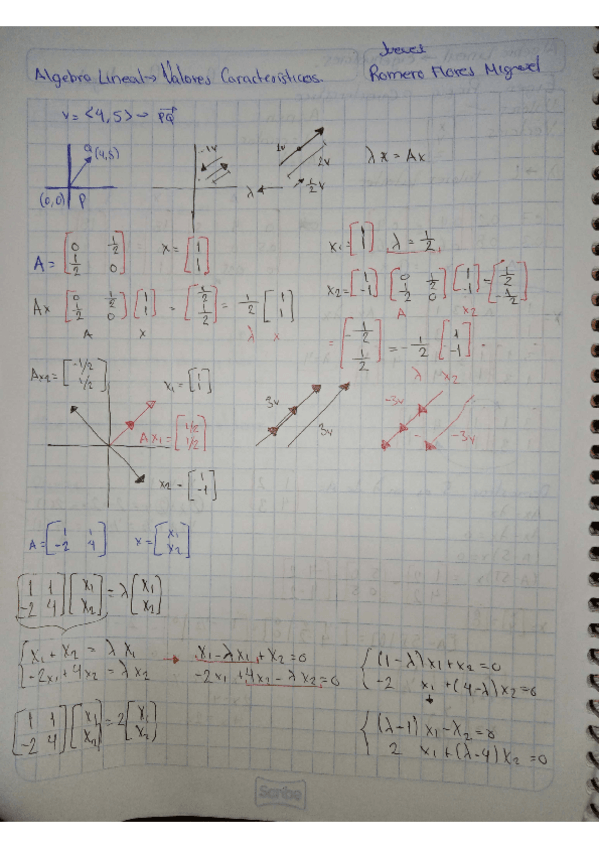 Jueves
Algebra Lineal → Valores Caracteristicos. Romero Flores Miguel
v = <4,5> → PQ
Q (4,5)
(0,0) P
-1v
λ
1v 2v
1/2 v
λx = Ax
A = [0 1/2; 1/2 0] x = [1; 1]
x₁ = [1; 1] λ = 1/2
Ax [0 1/2; 1/2 0] [1; 1] = [1/2; 1/2] = 1/2 [1; 1]
A x λ x
x₂ = [1; -1] [0 1/2; 1/2 0] [1; -1] = [1/2; -1/2]
A x₂
= [-1/2; 1/2] = -1/2 [1; -1]
λ x₂
Ax₂ = [-1/2; 1/2] x₁ = [1; 1]
Ax₁ = [1/2; 1/2]
x₂ = [1; -1]
3v 3v
-3v -3v
A = [1 1; -2 4] x = [x₁; x₂]
[1 1; -2 4] [x₁; x₂] = λ [x₁; x₂]
x₁ + x₂ = λ x₁ → x₁ - λx₁ + x₂ = 0 (1-λ) x₁ + x₂ = 0
-2x₁ + 4x₂ = λ x₂ -2x₁ + 4x₂ - λx₂ = 0 -2 x₁ + (4-λ) x₂ = 0
[1 1; -2 4] [x₁; x₂] = 2 [x₁; x₂]
(λ-1) x₁ - x₂ = 0
2 x₁ + (λ-4) x₂ = 0
Scribe